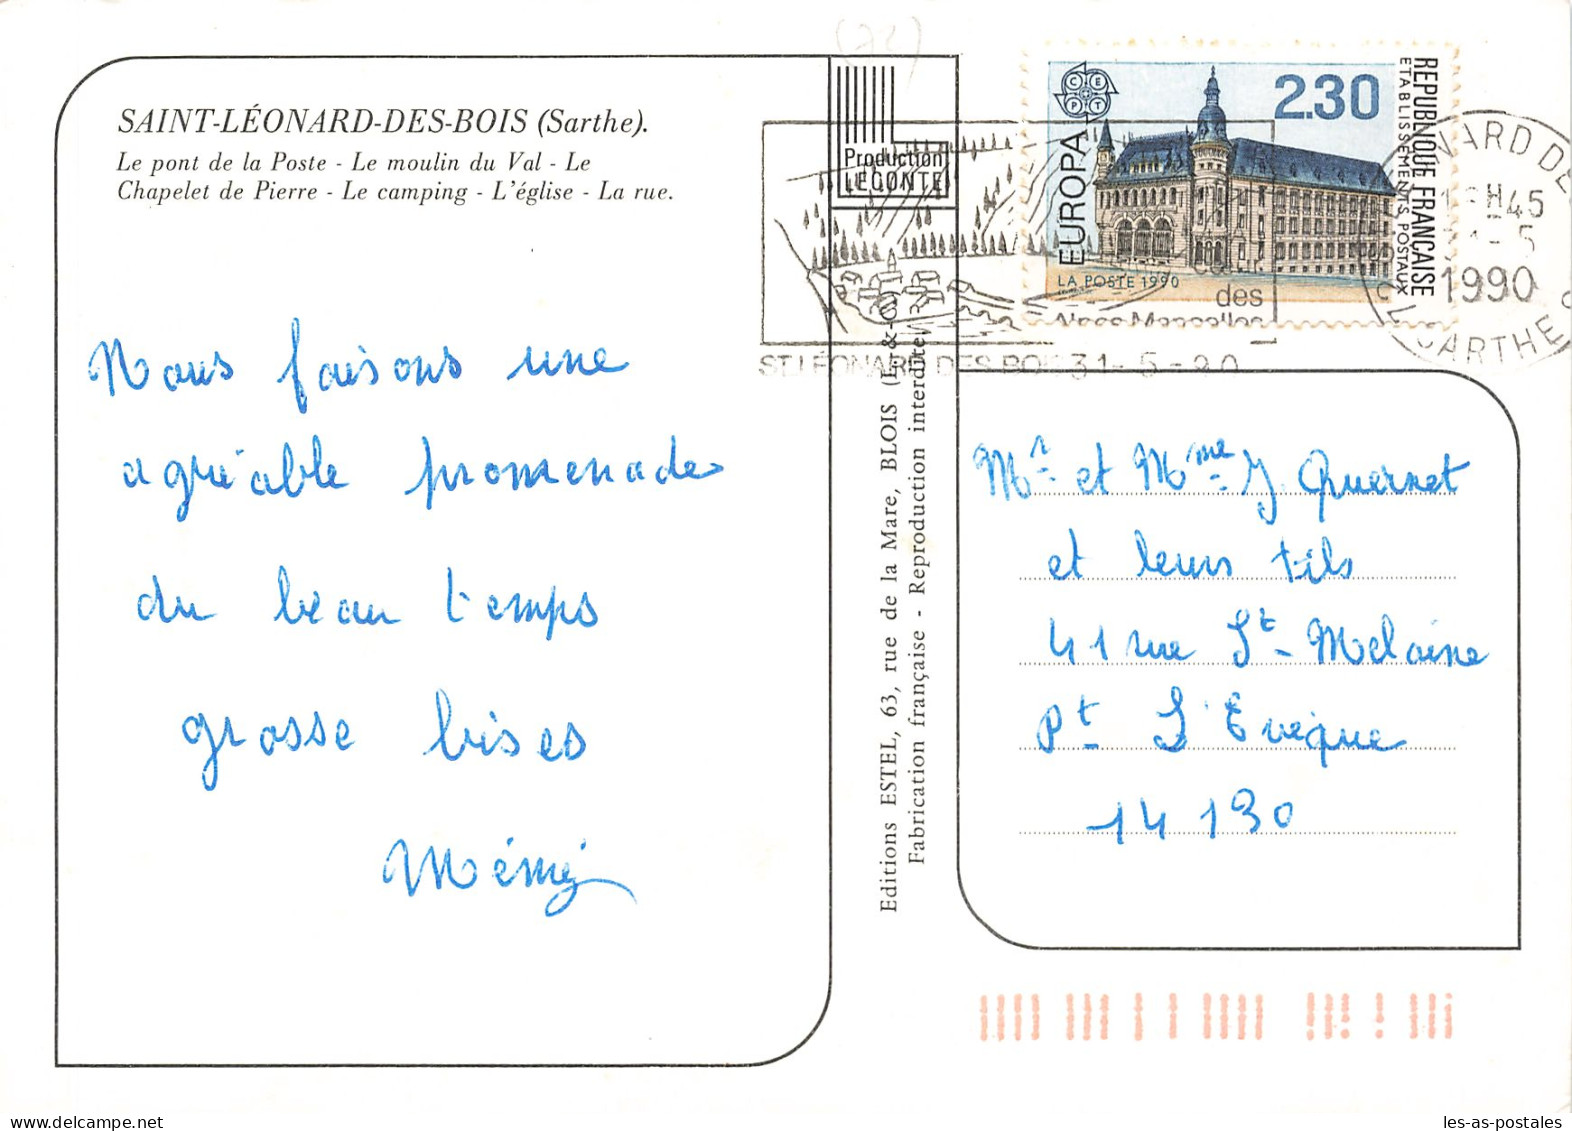 (72)
SAINT-LÉONARD-DES-BOIS (Sarthe).
Le pont de la Poste - Le moulin du Val - Le
Chapelet de Pierre - Le camping - L'église - La rue.
Nous faisons une
agréable promenade
du beau temps
grosse bises
Mémé
Production
LECONTE
Editions ESTEL, 63, rue de la Mare, BLOIS (L.-&-C.)
Fabrication française - Reproduction interdite
CEPT
EUROPA
2.30
REPUBLIQUE FRANÇAISE
ETABLISSEMENTS POSTAUX
LA POSTE 1990
coeur
des
Alpes Mancelles
ST LÉONARD DES BOIS 31-5-90
NARD DE
H45
5
1990
SARTHE
Mr et Mme J Quernet
et leurs fils
41 rue St-Melaine
Pt L'Evêque
14130
les-as-postales.com
les-as-postales